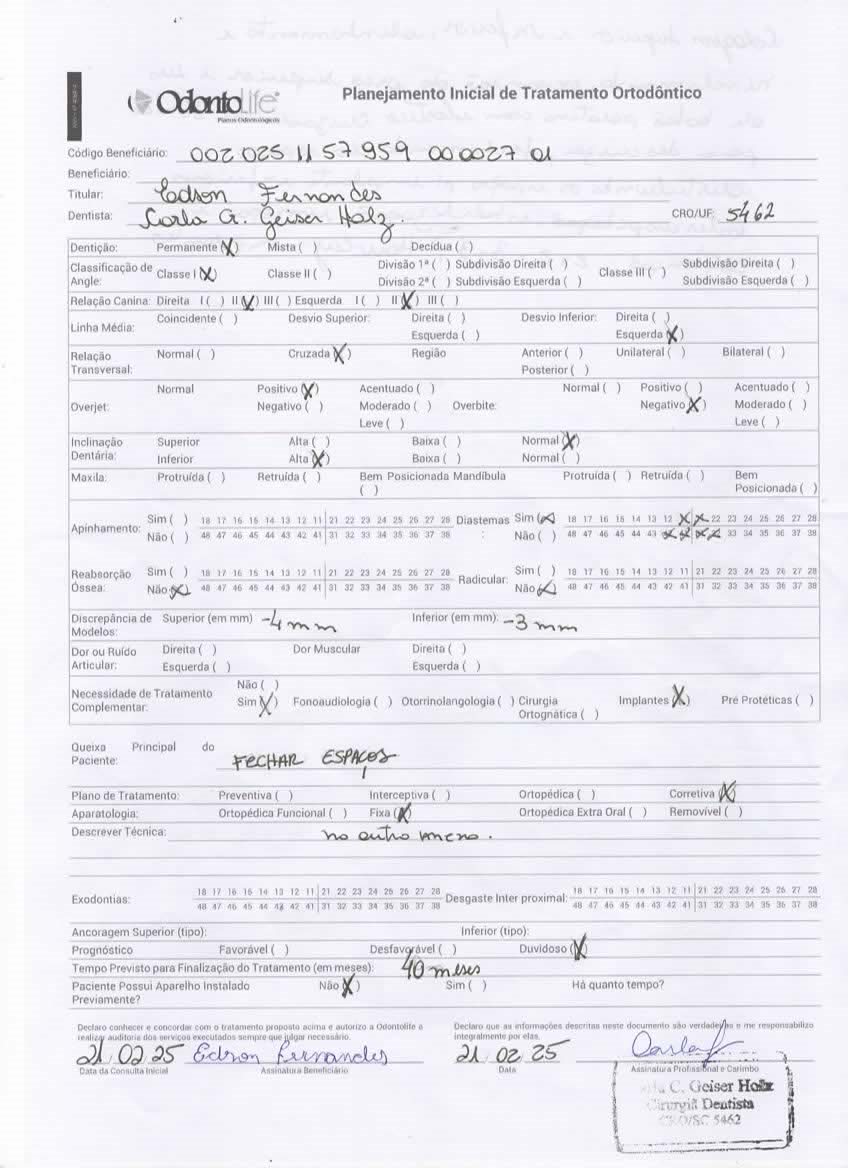 OdontoLife
Planos Odontológicos
Planejamento Inicial de Tratamento Ortodôntico
Código Beneficiário: 002 025 11 57 959 000027 01
Beneficiário:
Titular: Edson Fernandes
Dentista: Carla G. Geiser Holz CRO/UF: 5462
Dentição: Permanente (X) Mista ( ) Decídua ( )
Classificação de Angle: Classe I (X) Classe II ( ) Divisão 1ª ( ) Subdivisão Direita ( ) Classe III ( ) Subdivisão Direita ( )
Divisão 2ª ( ) Subdivisão Esquerda ( ) Subdivisão Esquerda ( )
Relação Canina: Direita I ( ) II (X) III ( ) Esquerda I ( ) II (X) III ( )
Linha Média: Coincidente ( ) Desvio Superior: Direita ( ) Desvio Inferior: Direita ( )
Esquerda ( ) Esquerda (X)
Relação Transversal: Normal ( ) Cruzada (X) Região Anterior ( ) Unilateral ( ) Bilateral ( )
Posterior ( )
Overjet: Normal Positivo (X) Acentuado ( ) Overbite: Normal ( ) Positivo ( ) Acentuado ( )
Negativo ( ) Moderado ( ) Negativo (X) Moderado ( )
Leve ( ) Leve ( )
Inclinação Dentária: Superior Alta ( ) Baixa ( ) Normal (X)
Inferior Alta (X) Baixa ( ) Normal ( )
Maxila: Protruída ( ) Retruída ( ) Bem Posicionada ( ) Mandíbula Protruída ( ) Retruída ( ) Bem Posicionada ( )
Apinhamento: Sim ( ) 18 17 16 15 14 13 12 11 21 22 23 24 25 26 27 28 Diastemas: Sim (X) 18 17 16 15 14 13 12 X X 22 23 24 25 26 27 28
Não ( ) 48 47 46 45 44 43 42 41 31 32 33 34 35 36 37 38 Não ( ) 48 47 46 45 44 43 X X X X 33 34 35 36 37 38
Reabsorção Óssea: Sim ( ) 18 17 16 15 14 13 12 11 21 22 23 24 25 26 27 28 Radicular: Sim ( ) 18 17 16 15 14 13 12 11 21 22 23 24 25 26 27 28
Não (X) 48 47 46 45 44 43 42 41 31 32 33 34 35 36 37 38 Não (X) 48 47 46 45 44 43 42 41 31 32 33 34 35 36 37 38
Discrepância de Modelos: Superior (em mm) -4 mm Inferior (em mm): -3 mm
Dor ou Ruído Articular: Direita ( ) Dor Muscular Direita ( )
Esquerda ( ) Esquerda ( )
Necessidade de Tratamento Complementar: Não ( )
Sim (X) Fonoaudiologia ( ) Otorrinolangologia ( ) Cirurgia Ortognática ( ) Implantes (X) Pré Protéticas ( )
Queixa Principal do Paciente: FECHAR ESPAÇOS
Plano de Tratamento: Preventiva ( ) Interceptiva ( ) Ortopédica ( ) Corretiva (X)
Aparatologia: Ortopédica Funcional ( ) Fixa (X) Ortopédica Extra Oral ( ) Removível ( )
Descrever Técnica: no outro
Exodontias: 18 17 16 15 14 13 12 11 21 22 23 24 25 26 27 28 Desgaste Inter proximal: 18 17 16 15 14 13 12 11 21 22 23 24 25 26 27 28
48 47 46 45 44 43 42 41 31 32 33 34 35 36 37 38 48 47 46 45 44 43 42 41 31 32 33 34 35 36 37 38
Ancoragem Superior (tipo): Inferior (tipo):
Prognóstico Favorável ( ) Desfavorável ( ) Duvidoso (X)
Tempo Previsto para Finalização do Tratamento (em meses): 40 meses
Paciente Possui Aparelho Instalado Previamente? Não (X) Sim ( ) Há quanto tempo?
Declaro conhecer e concordar com o tratamento proposto acima e autorizo a Odontolife a realizar auditoria dos serviços executados sempre que julgar necessário.
Declaro que as informações descritas neste documento são verdadeiras e me responsabilizo integralmente por elas.
21 02 25 Edson Fernandes 21 02 25
Data da Consulta Inicial Assinatura Beneficiário Data Assinatura Profissional e Carimbo
C. Geiser Holz
Cirurgiã Dentista
CRO/SC 5462